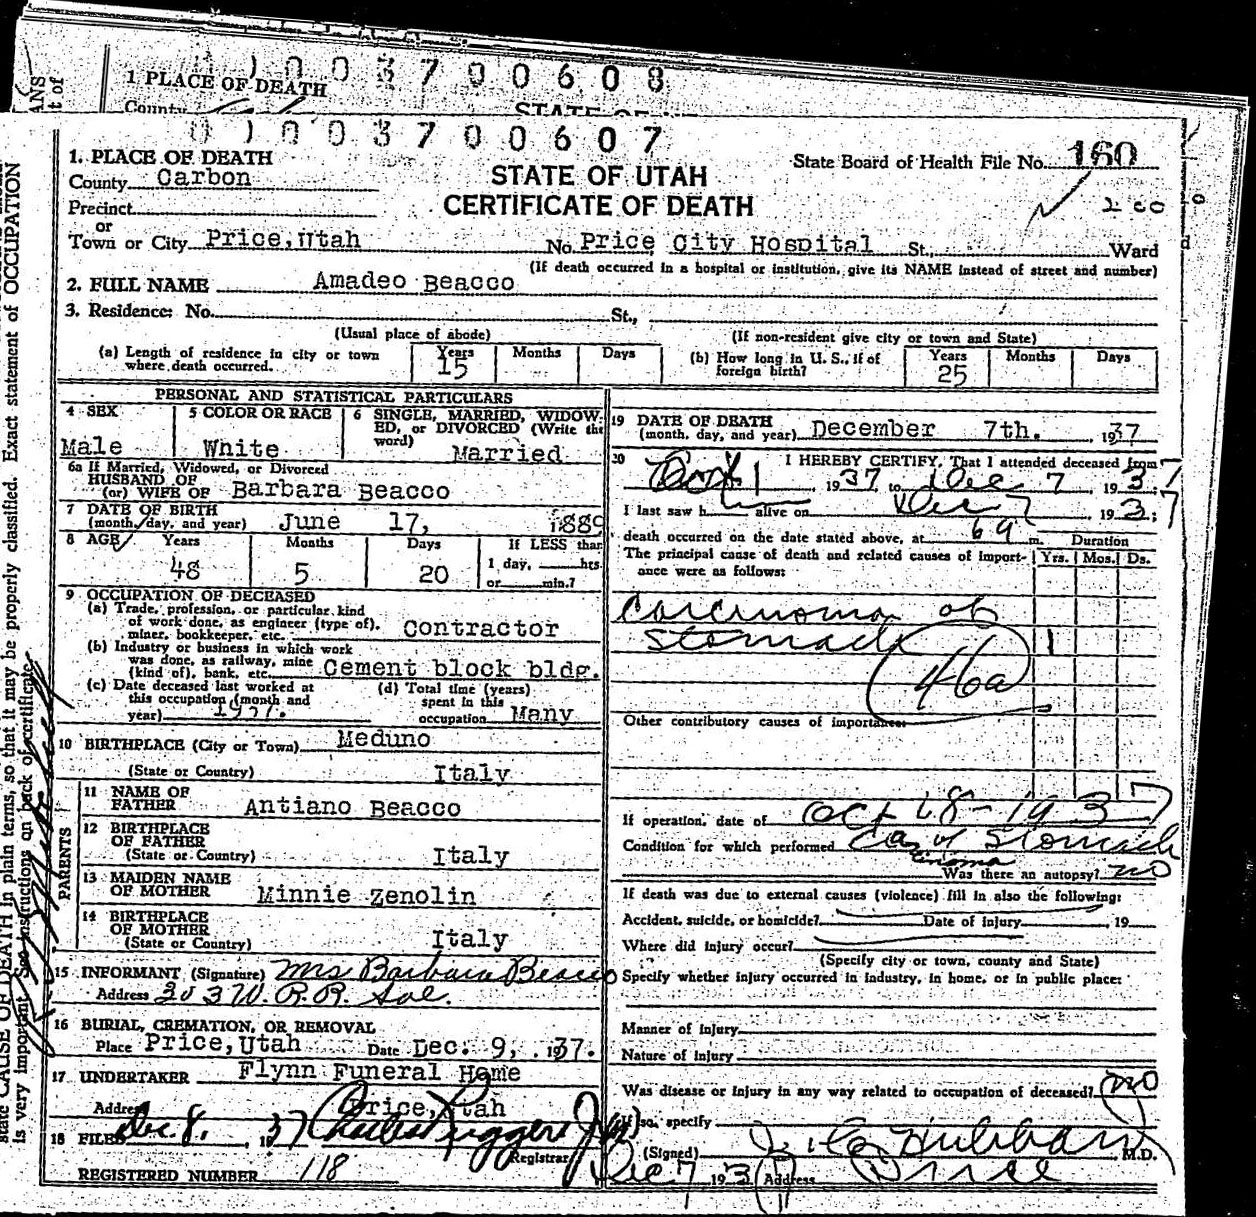 1 PLACE OF DEATH 0 1 0 0 3 7 0 0 6 0 8
County
STATE OF
0 1 0 0 3 7 0 0 6 0 7
1. PLACE OF DEATH
County Carbon
STATE OF UTAH
State Board of Health File No. 160
Precinct
CERTIFICATE OF DEATH
200
or
Town or City Price, Utah No. Price City Hospital St., Ward
(If death occurred in a hospital or institution, give its NAME instead of street and number)
2. FULL NAME Amadeo Beacco
3. Residence: No. St.,
(Usual place of abode) (If non-resident give city or town and State)
(a) Length of residence in city or town where death occurred. Years 15 Months Days
(b) How long in U. S., if of foreign birth? Years 25 Months Days
PERSONAL AND STATISTICAL PARTICULARS
4 SEX Male
5 COLOR OR RACE White
6 SINGLE, MARRIED, WIDOWED, or DIVORCED (Write the word) Married
6a If Married, Widowed, or Divorced
HUSBAND OF
(or) WIFE OF Barbara Beacco
7 DATE OF BIRTH
(month, day, and year) June 17, 1889
8 AGE Years 48 Months 5 Days 20 If LESS than
1 day, hrs.
or min.?
9 OCCUPATION OF DECEASED
(a) Trade, profession, or particular kind
of work done, as engineer (type of),
miner, bookkeeper, etc. Contractor
(b) Industry or business in which work
was done, as railway, mine
(kind of), bank, etc. Cement block bldg.
(c) Date deceased last worked at
this occupation (month and
year) 1937.
(d) Total time (years)
spent in this
occupation Many
10 BIRTHPLACE (City or Town) Meduno
(State or Country) Italy
PARENTS
11 NAME OF
FATHER Antiano Beacco
12 BIRTHPLACE
OF FATHER
(State or Country) Italy
13 MAIDEN NAME
OF MOTHER Minnie Zenolin
14 BIRTHPLACE
OF MOTHER
(State or Country) Italy
15 INFORMANT (Signature) Mrs Barbara Beacco
Address 203 W. R.R. Ave.
16 BURIAL, CREMATION, OR REMOVAL
Place Price, Utah Date Dec. 9, 1937.
17 UNDERTAKER Flynn Funeral Home
Address Price, Utah
18 FILED Dec. 8, 1937
Registrar
REGISTERED NUMBER 118
19 DATE OF DEATH
(month, day, and year) December 7th. 1937
20 I HEREBY CERTIFY, That I attended deceased from
Oct 1 1937 to Dec 7, 1937
I last saw h alive on Dec 7 1937
death occurred on the date stated above, at 6 a m. Duration
The principal cause of death and related causes of importance were as follows: Yrs. Mos. Ds.
Carcinoma of
Stomach 1
46a
Other contributory causes of importance:
If operation, date of Oct 18-1937
Condition for which performed Carcinoma of Stomach
Was there an autopsy? no
If death was due to external causes (violence) fill in also the following:
Accident, suicide, or homicide? Date of injury 19
Where did injury occur?
(Specify city or town, county and State)
Specify whether injury occurred in industry, in home, or in public place:
Manner of injury
Nature of injury
Was disease or injury in any way related to occupation of deceased? no
If so, specify
(Signed) Hubbard M.D.
Dec 7 193 (Address) Price
state CAUSE OF DEATH in plain terms, so that it may be properly classified. Exact statement of OCCUPATION
is very important. See instructions on back of certificate.